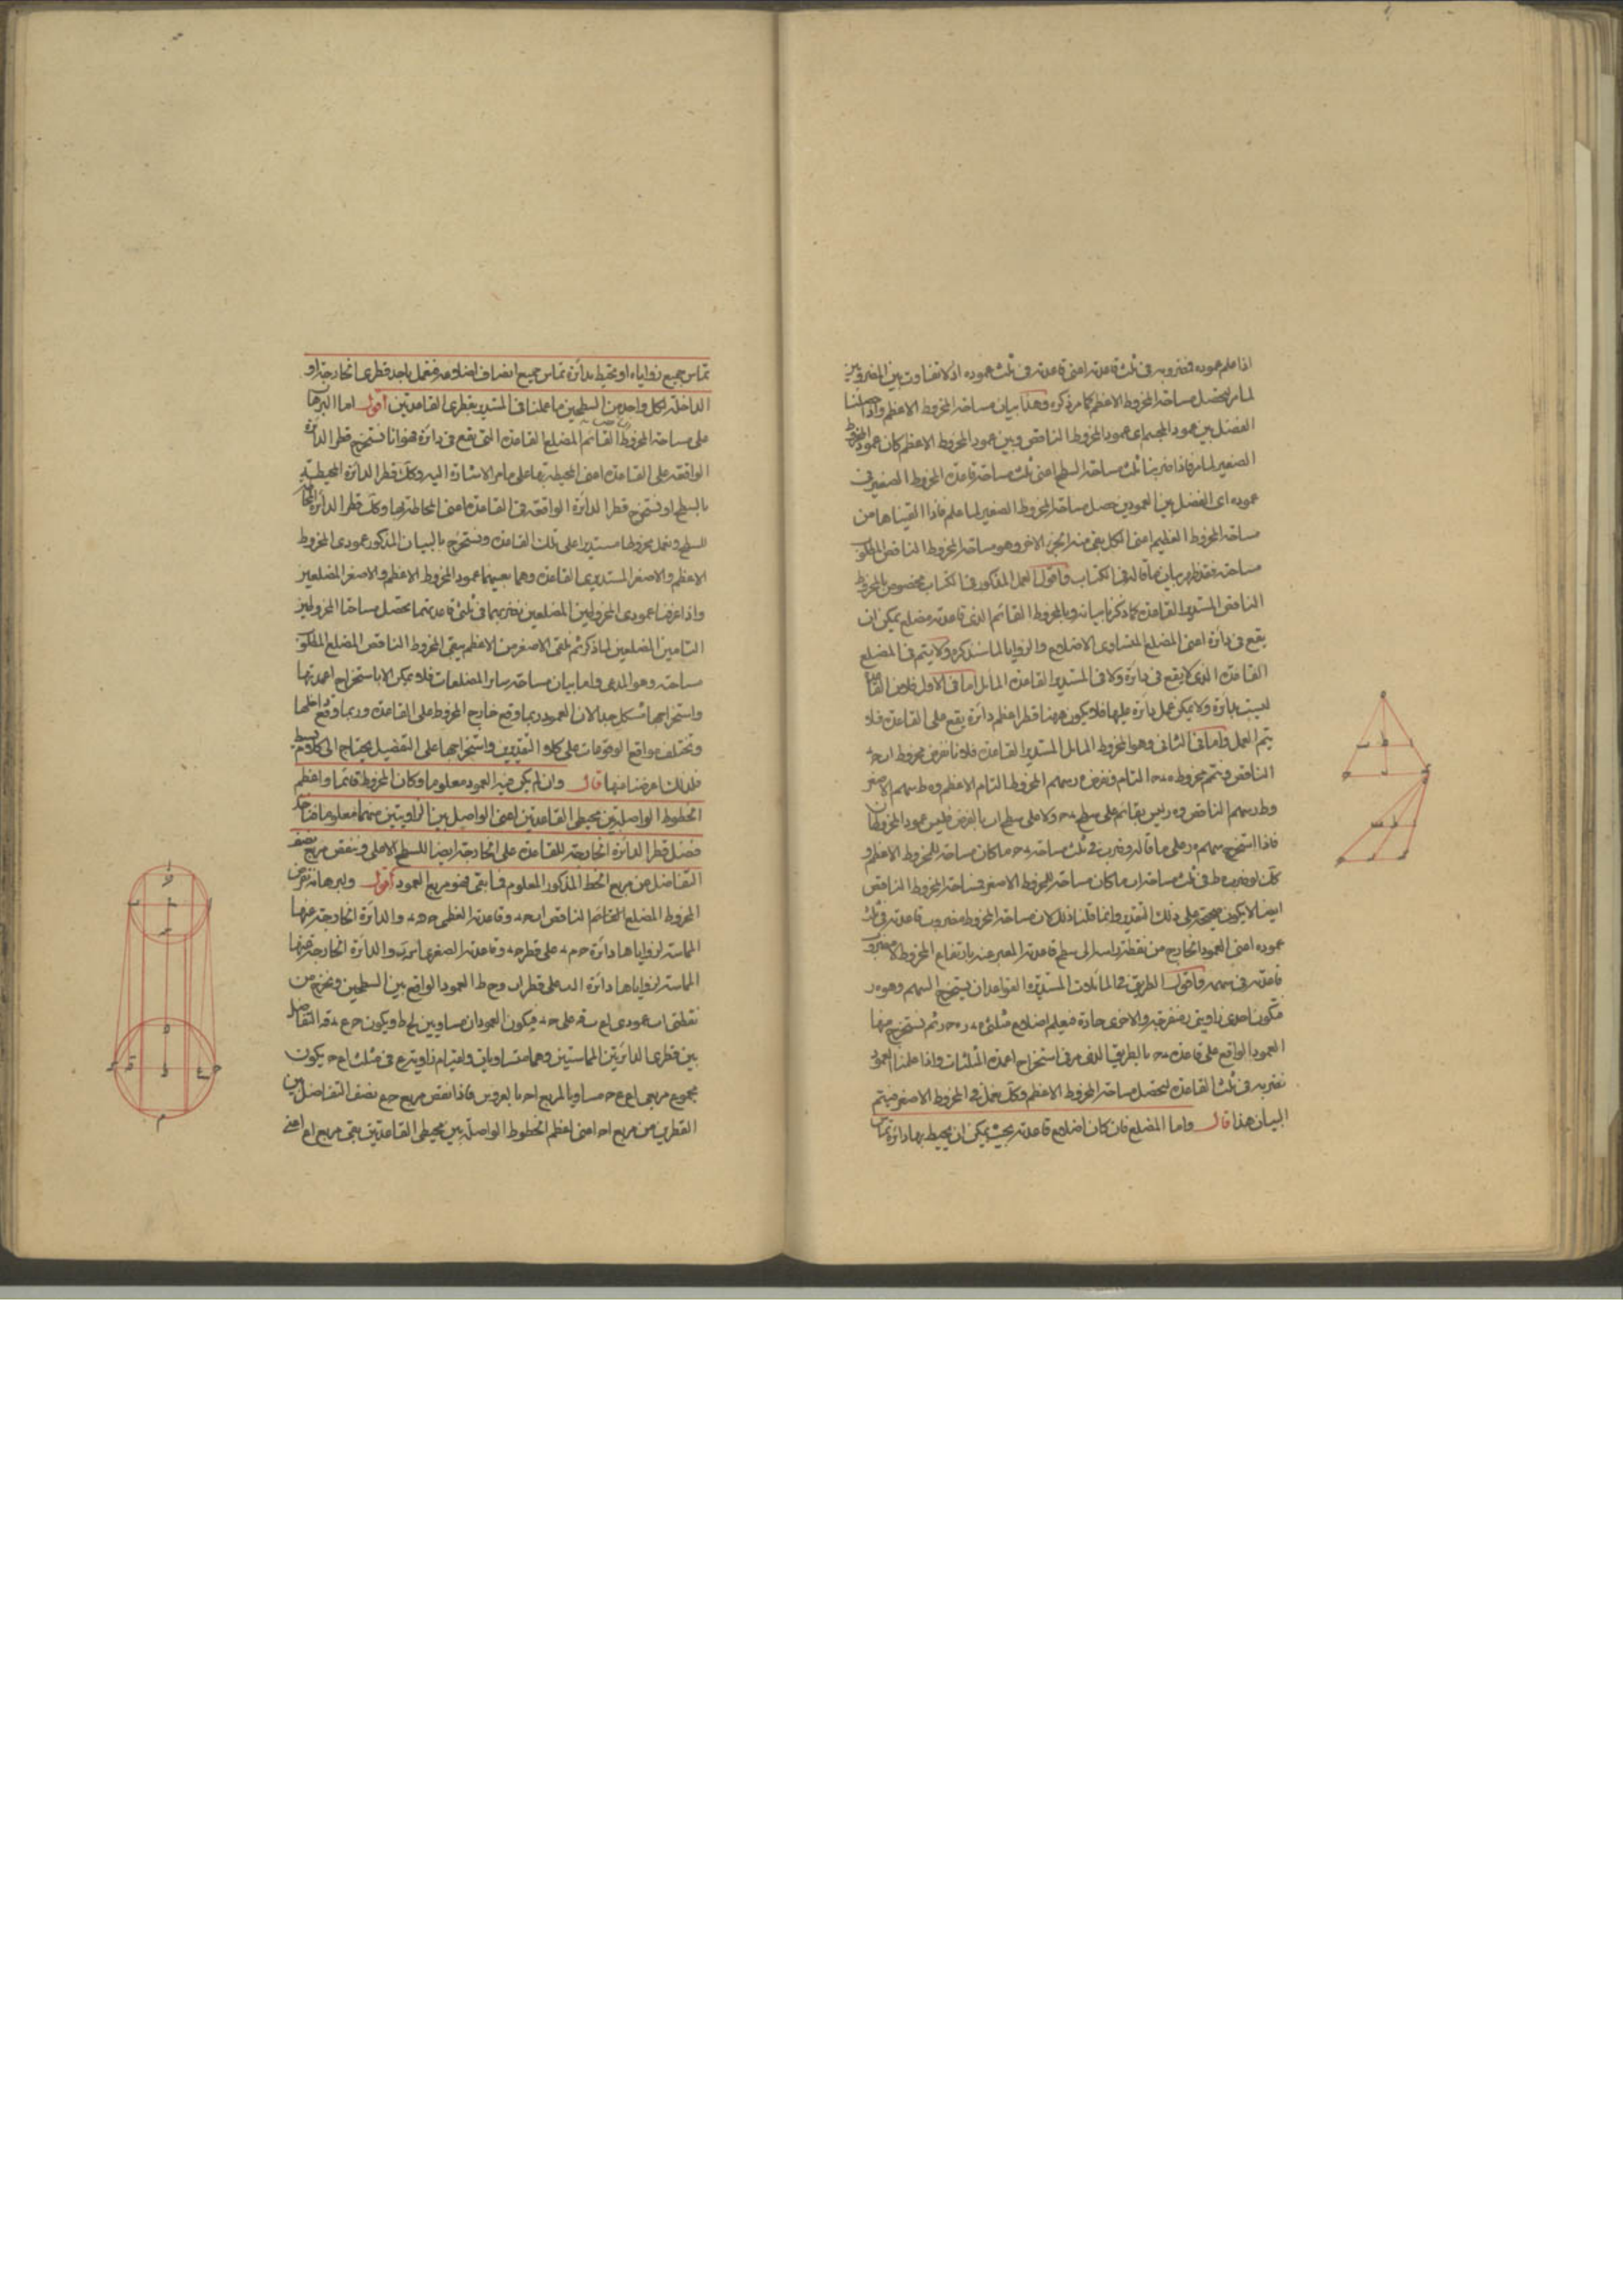 اذا علم عموده فضروبه فى ثلث قاعدته اعنى قاعدته فى ثلث عموده اذ لا تفاوت بين المضروبين
لما مر يحصل مساحة المخروط الاعظم كما مر ذكره وهذا بيان مساحة المخروط الاعظم واذا جعلنا
الفضل بين عمود المجسم اى عمود المخروط الناقص وبين عمود المخروط الاعظم كان عمود المخروط
الصغير لما مر فاذا ضربنا ثلث مساحة السطح اعنى ثلث مساحة قاعدة المخروط الصغير فى
عموده اى الفضل بين العمودين حصل مساحة المخروط الصغير لما علم فاذا القيناها من
مساحة المخروط العظيم اعنى الكل بقى منه الجزء الاخر وهو مساحة المخروط الناقص المطلوب
مساحته فقد ظهر بيان ما قاله فى الكتاب واقول العمل المذكور فى الكتاب مخصوص بالمخروط
الناقص المستدير القاعدة كما ذكرنا بيانه وبالمخروط القائم الذى قاعدته مضلع يمكن ان
يقع فى دائرة اعنى المضلع المتساوى الاضلاع والزوايا لما سنذكره ولا يتم فى المضلع
القاعدة الذى لا يقع فى دائرة ولا فى المستدير القاعدة المائل اما فى الاول فلان القاعدة
ليست بدائرة ولا يمكن عمل دائرة عليها فلا يكون ههنا قطر اعظم دائرة يقع على القاعدة فلا
يتم العمل واما فى الثانى وهو المخروط المائل المستدير القاعدة فلانا نفرض مخروط ا ب ح د
الناقص ونتم مخروط ه ح د التام ونفرض ه ر سهم المخروط التام الاعظم و ه ط سهم الاصغر
و ط ر سهم الناقص و ه ر ليس بقائم على سطح ح د ولا على سطح ا ب بالفرض فليس عمود المخروطان
فاذا استخرج سهم ه ر على ما قاله وضرب فى ثلث مساحة ح د ما كان مساحة للمخروط الاعظم و
كك لو ضرب ه ط فى ثلث مساحة ا ب ما كان مساحة للمخروط الاصغر فمساحة المخروط الناقص
ايضا لا يكون صحيحة على ذلك التقدير وانما قلنا ذلك لان مساحة المخروط مضروب قاعدته فى ثلث
عموده اعنى العمود الخارج من نقطة راسه الى سطح قاعدته المعبر عنه بارتفاع المخروط لا مضروب
قاعدته فى سهمه واقول الطريق فى المائلات المستديرة القواعد ان يستخرج السهم وهو ه ر
فتكون احدى زاويتى ر منفرجة والاخرى حادة فيعلم اضلاع مثلثى ه ر ح ه ر د ثم نستخرج منها
العمود الواقع على قاعدة ح د بالطريق الذى مر فى استخراج اعمدة المثلثات واذا علمنا العمود
نضربه فى ثلث القاعدة ليحصل مساحة المخروط الاعظم وكك نعمل فى المخروط الاصغر فيتم
البيان هذا قال واما المضلع فان كان اضلاع قاعدته بحيث يمكن ان يحيط بها دائرة تماس
تماس جميع زواياه او تحيط بدائرة تماس جميع انصاف اضلاعه فنعمل باحد قطرى الخارجة او
الداخلة لكل واحد من السطحين ما عملنا فى المستدير بقطرى القاعدتين اقول اما البرهان
على مساحة المخروط القائم المضلع القاعدة التى يقع فى دائرة فهو انا نستخرج قطر الدائرة
الواقعة على القاعدة اعنى المحيطة بها على ما مر الاشارة اليه وكك قطر الدائرة المحيطة
بالسطح او نستخرج قطر الدائرة الواقعة فى القاعدة اعنى المحاطة بها وكك قطر الدائرة المحاطة
للسطح ونعمل مخروطا مستديرا على تلك القاعدة ونستخرج بالبيان المذكور عمودى المخروط
الاعظم والاصغر المستديرى القاعدة وهما بعينهما عمود المخروط الاعظم والاصغر المضلعين
واذا عرفنا عمودى المخروطين المضلعين نضربهما فى ثلثى قاعدتهما يحصل مساحتا المخروطين
التامين المضلعين لما ذكر ثم نلقى الاصغر من الاعظم يبقى المخروط الناقص المضلع المطلوب
مساحته وهو المدعى واما بيان مساحة سائر المضلعات فلا يمكن الا باستخراج اعمدتها
واستخراجها مشكل جدا لان العمود ربما وقع خارج المخروط على القاعدة وربما وقع داخلها
وتختلف مواقع الوقوعات على كلا التقديرين واستخراجها على التفصيل يحتاج الى كلام بسيط
فلذلك اعرضنا عنها قال وان لم يكن فيه العمود معلوما وكان المخروط قائما واعظم
الخطوط الواصلة بين محيطى القاعدتين اعنى الواصل بين الزاويتين منهما معلوما فناخذ
فضل قطر الدائرة الخارجة للقاعدة على الخارجة ايضا للسطح الاعلى وننقص مربع نصف
التفاضل من مربع الخط المذكور المعلوم فما بقى فهو مربع العمود اقول وليبرهانه نفرض
المخروط المضلع القائم الناقص ا ب ح د وقاعدته العظمى ح ه د والدائرة الخارجة عنها
المماسة لزواياها دائرة ح م د على قطر ح د وقاعدته الصغرى ا ر ب والدائرة الخارجة عنها
المماسة لزواياها دائرة ا ل ب على قطر ا ب و ح ط العمود الواقع بين السطحين ونخرج من
نقطتى ا ب عمودى ا ع ب ق على ح د فيكون العمودان مساويين لح ط ويكون ح ع د ق التفاضل
بين قطرى الدائرتين المماستين وهما متساويان ولقيام زاوية ع فى مثلث ا ع ح يكون
مجموع مربعى ا ع ع ح مساويا لمربع ا ح بالعروس فاذا نقص مربع ح ع نصف التفاضل بين
القطرين من مربع ا ح اعنى اعظم الخطوط الواصلة بين محيطى القاعدتين بقى مربع ا ع اعنى